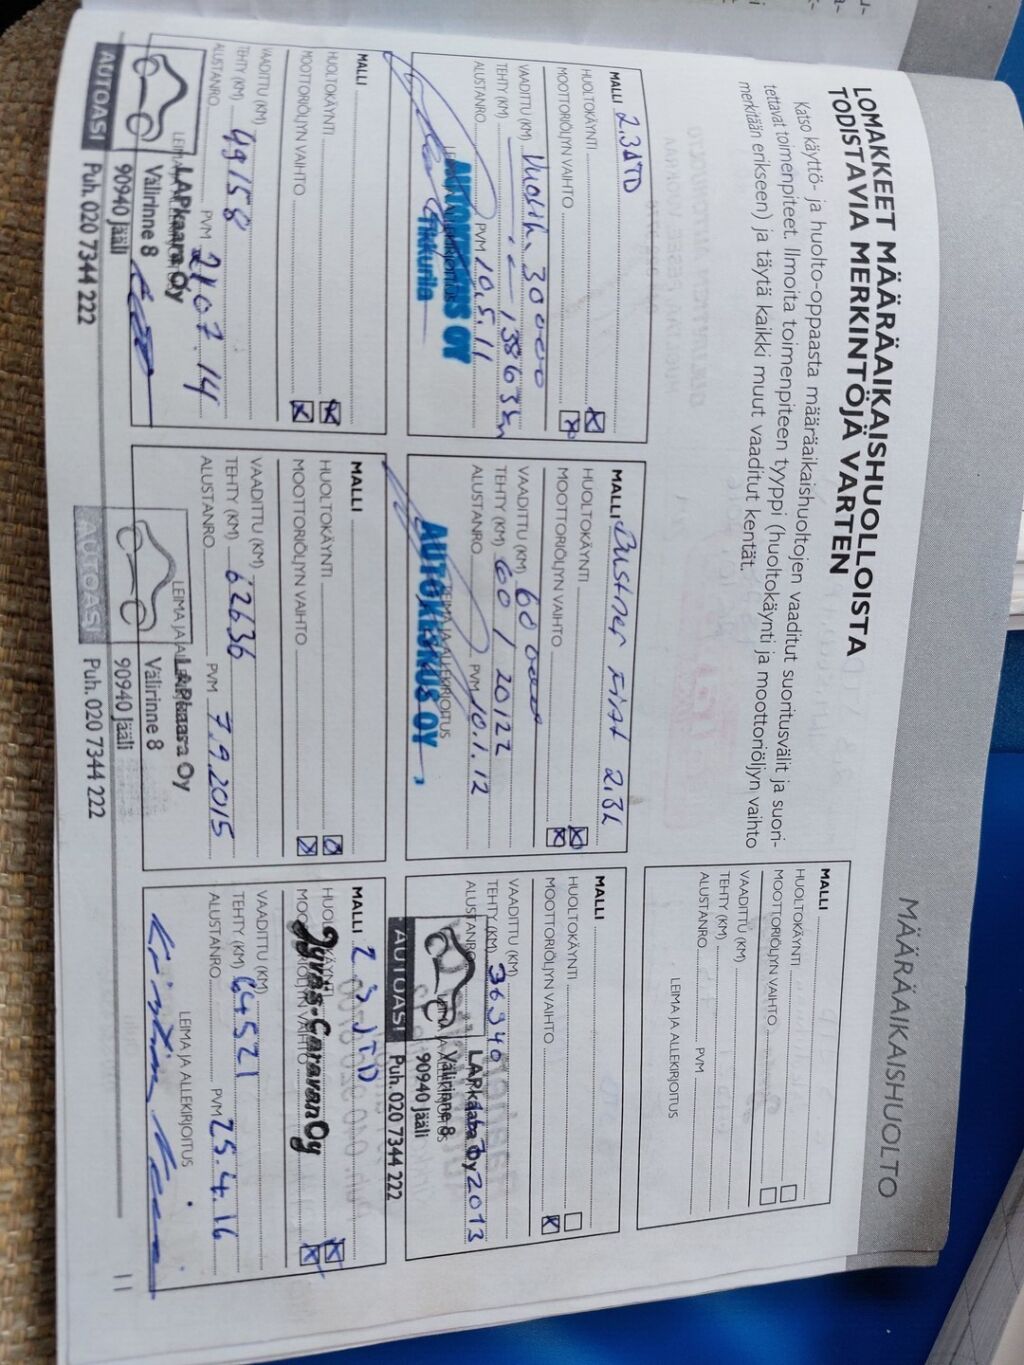 MÄÄRÄAIKAISHUOLTO
LOMAKKEET MÄÄRÄAIKAISHUOLLOISTA
TODISTAVIA MERKINTÖJÄ VARTEN
Katso käyttö- ja huolto-oppaasta määräaikaishuoltojen vaaditut suoritusvälit ja suori-
tettavat toimenpiteet. Ilmoita toimenpiteen tyyppi (huoltokäynti ja moottoriöljyn vaihto
merkitään erikseen) ja täytä kaikki muut vaaditut kentät.
MALLI
HUOLTOKÄYNTI
MOOTTORIÖLJYN VAIHTO
VAADITTU (KM)
TEHTY (KM)
ALUSTANRO. PVM
LEIMA JA ALLEKIRJOITUS
MALLI 2.3JTD
HUOLTOKÄYNTI
MOOTTORIÖLJYN VAIHTO
VAADITTU (KM) 30000
TEHTY (KM)
ALUSTANRO. PVM 10.5.11
AUTOKESKUS OY
Tikkurila
MALLI 2.3L
HUOLTOKÄYNTI
MOOTTORIÖLJYN VAIHTO
VAADITTU (KM) 60000
TEHTY (KM) 60 / 20122
ALUSTANRO. PVM 10.1.12
LEIMA JA ALLEKIRJOITUS
AUTOKESKUS OY
MALLI
HUOLTOKÄYNTI
MOOTTORIÖLJYN VAIHTO
VAADITTU (KM)
TEHTY (KM) 36940
ALUSTANRO. 2013
LAPkaara Oy
Välirinne 8
90940 Jääli
AUTOASI Puh. 020 7344 222
MALLI
HUOLTOKÄYNTI
MOOTTORIÖLJYN VAIHTO
VAADITTU (KM)
TEHTY (KM) 49158
ALUSTANRO. PVM 21.07.14
LAPkaara Oy
Välirinne 8
90940 Jääli
AUTOASI Puh. 020 7344 222
MALLI
HUOLTOKÄYNTI
MOOTTORIÖLJYN VAIHTO
VAADITTU (KM)
TEHTY (KM) 62636
ALUSTANRO. PVM 7.9.2015
LEIMA JA ALLEKIRJOITUS
LAPkaara Oy
Välirinne 8
90940 Jääli
AUTOASI Puh. 020 7344 222
MALLI 2.3JTD
HUOLTOKÄYNTI
MOOTTORIÖLJYN VAIHTO
Jyräs-Caravan Oy
VAADITTU (KM)
TEHTY (KM) 64521
ALUSTANRO. PVM 25.4.16
LEIMA JA ALLEKIRJOITUS
11